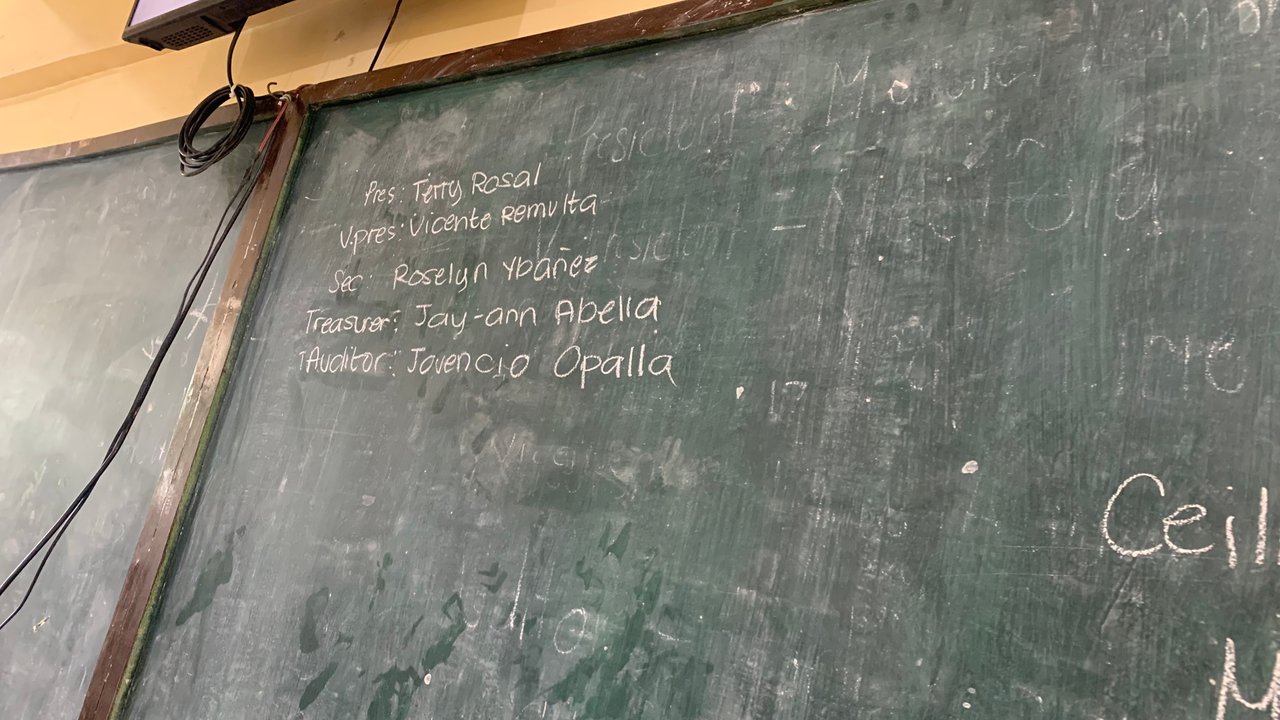 Pres: Terry Rosal
V.pres: Vicente Remulta
Sec: Roselyn Ybañez
Treasurer: Jay-ann Abella
Auditor: Jovencio Opalla
17
Ceil
M